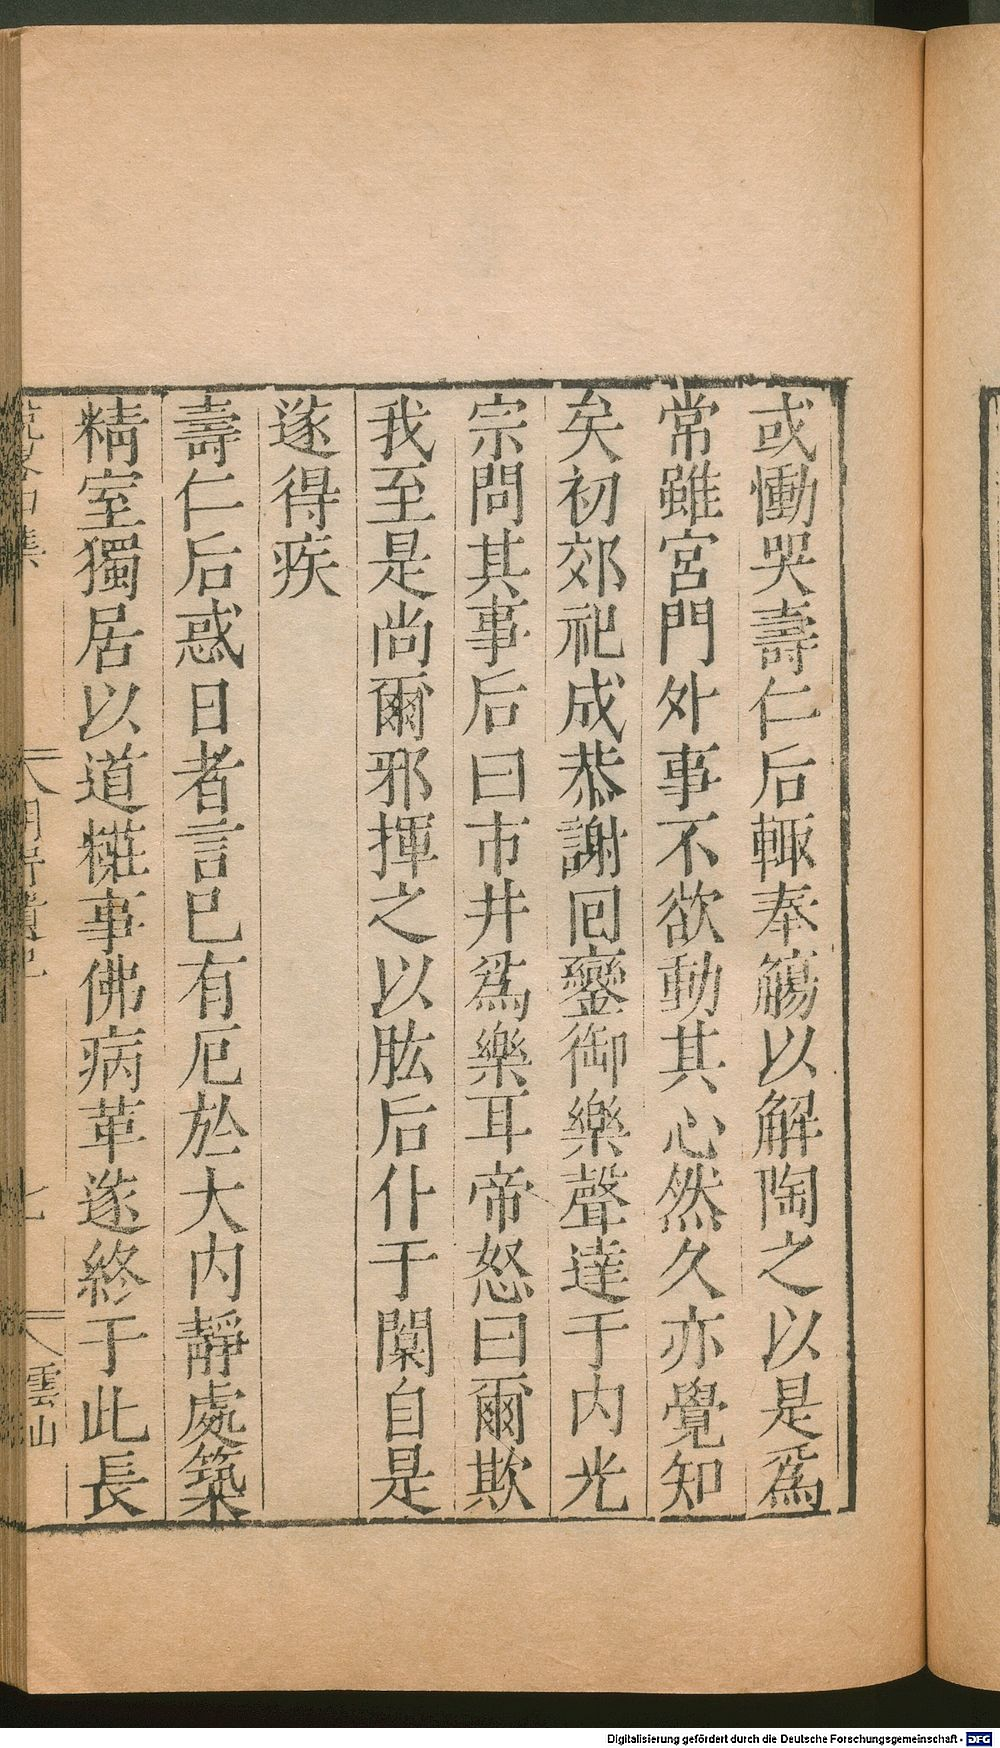 或慟哭壽仁后輙奉觴以解陶之以是爲
常雖宮門外事不欲動其心然久亦覺知
矣初郊祀成恭謝回鑾御樂聲達于内光
宗問其事后曰市井爲樂耳帝怒曰爾欺
我至是尚爾邪揮之以肱后仆于闑自是
遂得疾
壽仁后惑日者言已有厄於大内靜處築
精室獨居以道糚事佛病革遂終于此長
七
雲山
Digitalisierung gefördert durch die Deutsche Forschungsgemeinschaft - DFG